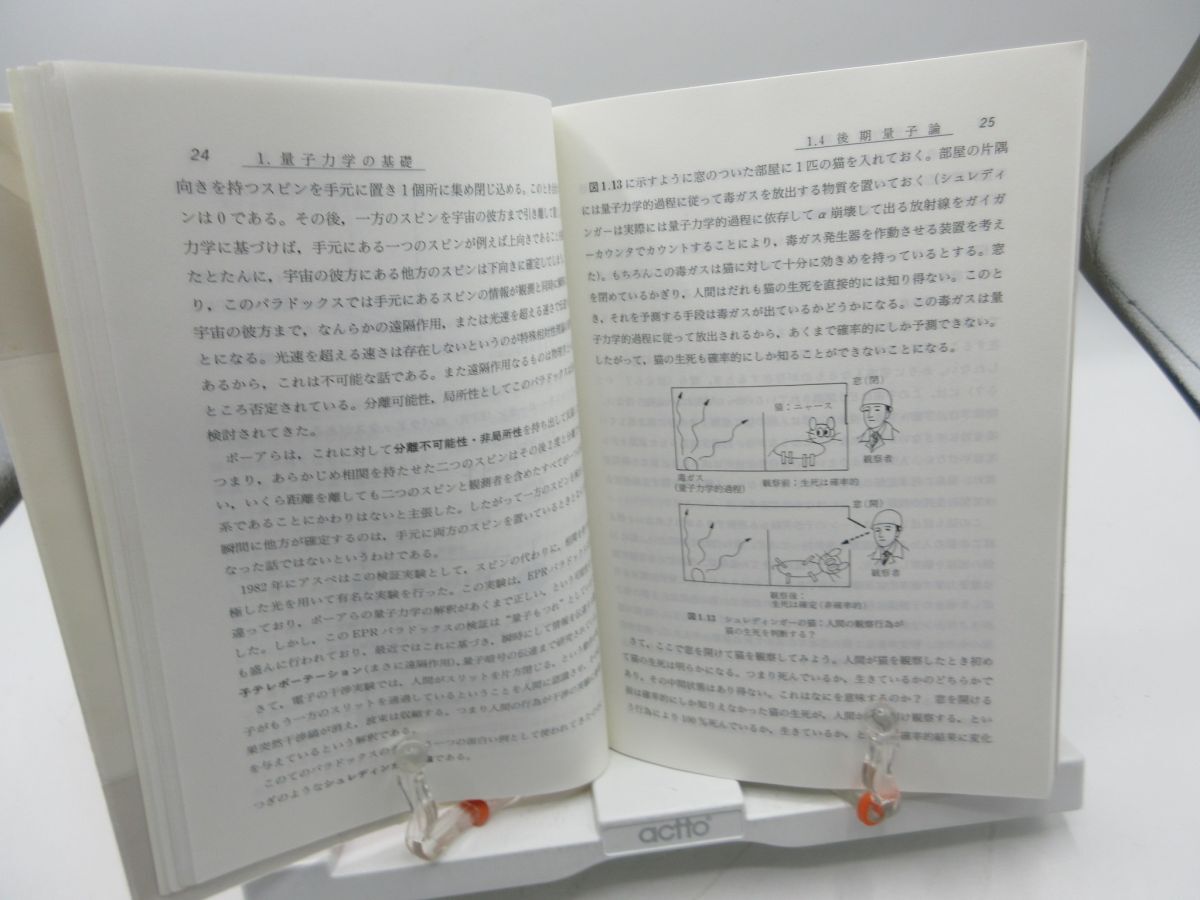 24
1. 量子力学の基礎
向きを持つスピンを手元に置き1個所に集め閉じ込める。このとき
ンは0である。その後，一方のスピンを宇宙の彼方まで引き離して
力学に基づけば，手元にある一つのスピンが例えば上向きであること
たとたんに，宇宙の彼方にある他方のスピンは下向きに確定してしまう
り，このパラドックスでは手元にあるスピンの情報が観測と同時に
宇宙の彼方まで，なんらかの遠隔作用，または光速を超える速さで
とになる。光速を超える速さは存在しないというのが特殊相対性理論
あるから，これは不可能な話である。また遠隔作用なるものは物理
ところ否定されている。分離可能性，局所性としてこのパラドックスは
検討されてきた。
ボーアらは，これに対して分離不可能性・非局所性を持ち出して
つまり，あらかじめ相関を持たせた二つのスピンはその後2度と分離
い，いくら距離を離しても二つのスピンと観測者を含めたすべてが一つの
系であることにかわりはないと主張した。したがって一方のスピンを
瞬間に他方が確定するのは，手元に両方のスピンを置いているときと
なった話ではないというわけである。
1982年にアスペはこの検証実験として，スピンの代わりに，相関を
極した光を用いて有名な実験を行った。この実験は，EPRパラドックス
違っており，ボーアらの量子力学の解釈があくまで正しい，という
した。しかし，このEPRパラドックスの検証は“量子もつれ”として
も盛んに行われており，最近ではこれに基づき，瞬時にして情報を伝達
子テレポーテーション(まさに遠隔作用)，量子暗号の伝達まで研究されて
さて，電子の干渉実験では，人間がスリットを片方閉じる，という
子がもう一方のスリットを通過しているということを人間に認識させ，その
果突然干渉縞が消え，波束は収縮する。つまり人間の行為が干渉の実験
を与えているという解釈である。
このてのパラドックスの 一つの面白い例として使われてきた
つぎのようなシュレディンガー である。
1.4 後期量子論
25
図1.13に示すように窓のついた部屋に1匹の猫を入れておく。部屋の片隅
には量子力学的過程に従って毒ガスを放出する物質を置いておく（シュレディ
ンガーは実際には量子力学的過程に依存してα崩壊して出る放射線をガイガ
ーカウンタでカウントすることにより，毒ガス発生器を作動させる装置を考え
た）。もちろんこの毒ガスは猫に対して十分に効きめを持っているとする。窓
を閉めているかぎり，人間はだれも猫の生死を直接的には知り得ない。このと
き，それを予測する手段は毒ガスが出ているかどうかになる。この毒ガスは量
子力学的過程に従って放出されるから，あくまで確率的にしか予測できない。
したがって，猫の生死も確率的にしか知ることができないことになる。
窓(閉)
猫：ニャース
観察者
毒ガス
(量子力学的過程)
観察前：生死は確率的
窓(開)
観察者
観察後：
生死は確定(非確率的)
図1.13 シュレディンガーの猫：人間の観察行為が
猫の生死を判断する？
さて，ここで窓を開けて猫を観察してみよう。人間が猫を観察したとき初め
て猫の生死は明らかになる。つまり死んでいるか，生きているかのどちらかで
あり，その中間状態はあり得ない。これはなにを意味するのか？ 窓を開ける
前は確率的にしか知りえなかった猫の生死が，人間が け観察する，とい
う行為により100％死んでいるか，生きているか，と 確率的結果に変化
actto